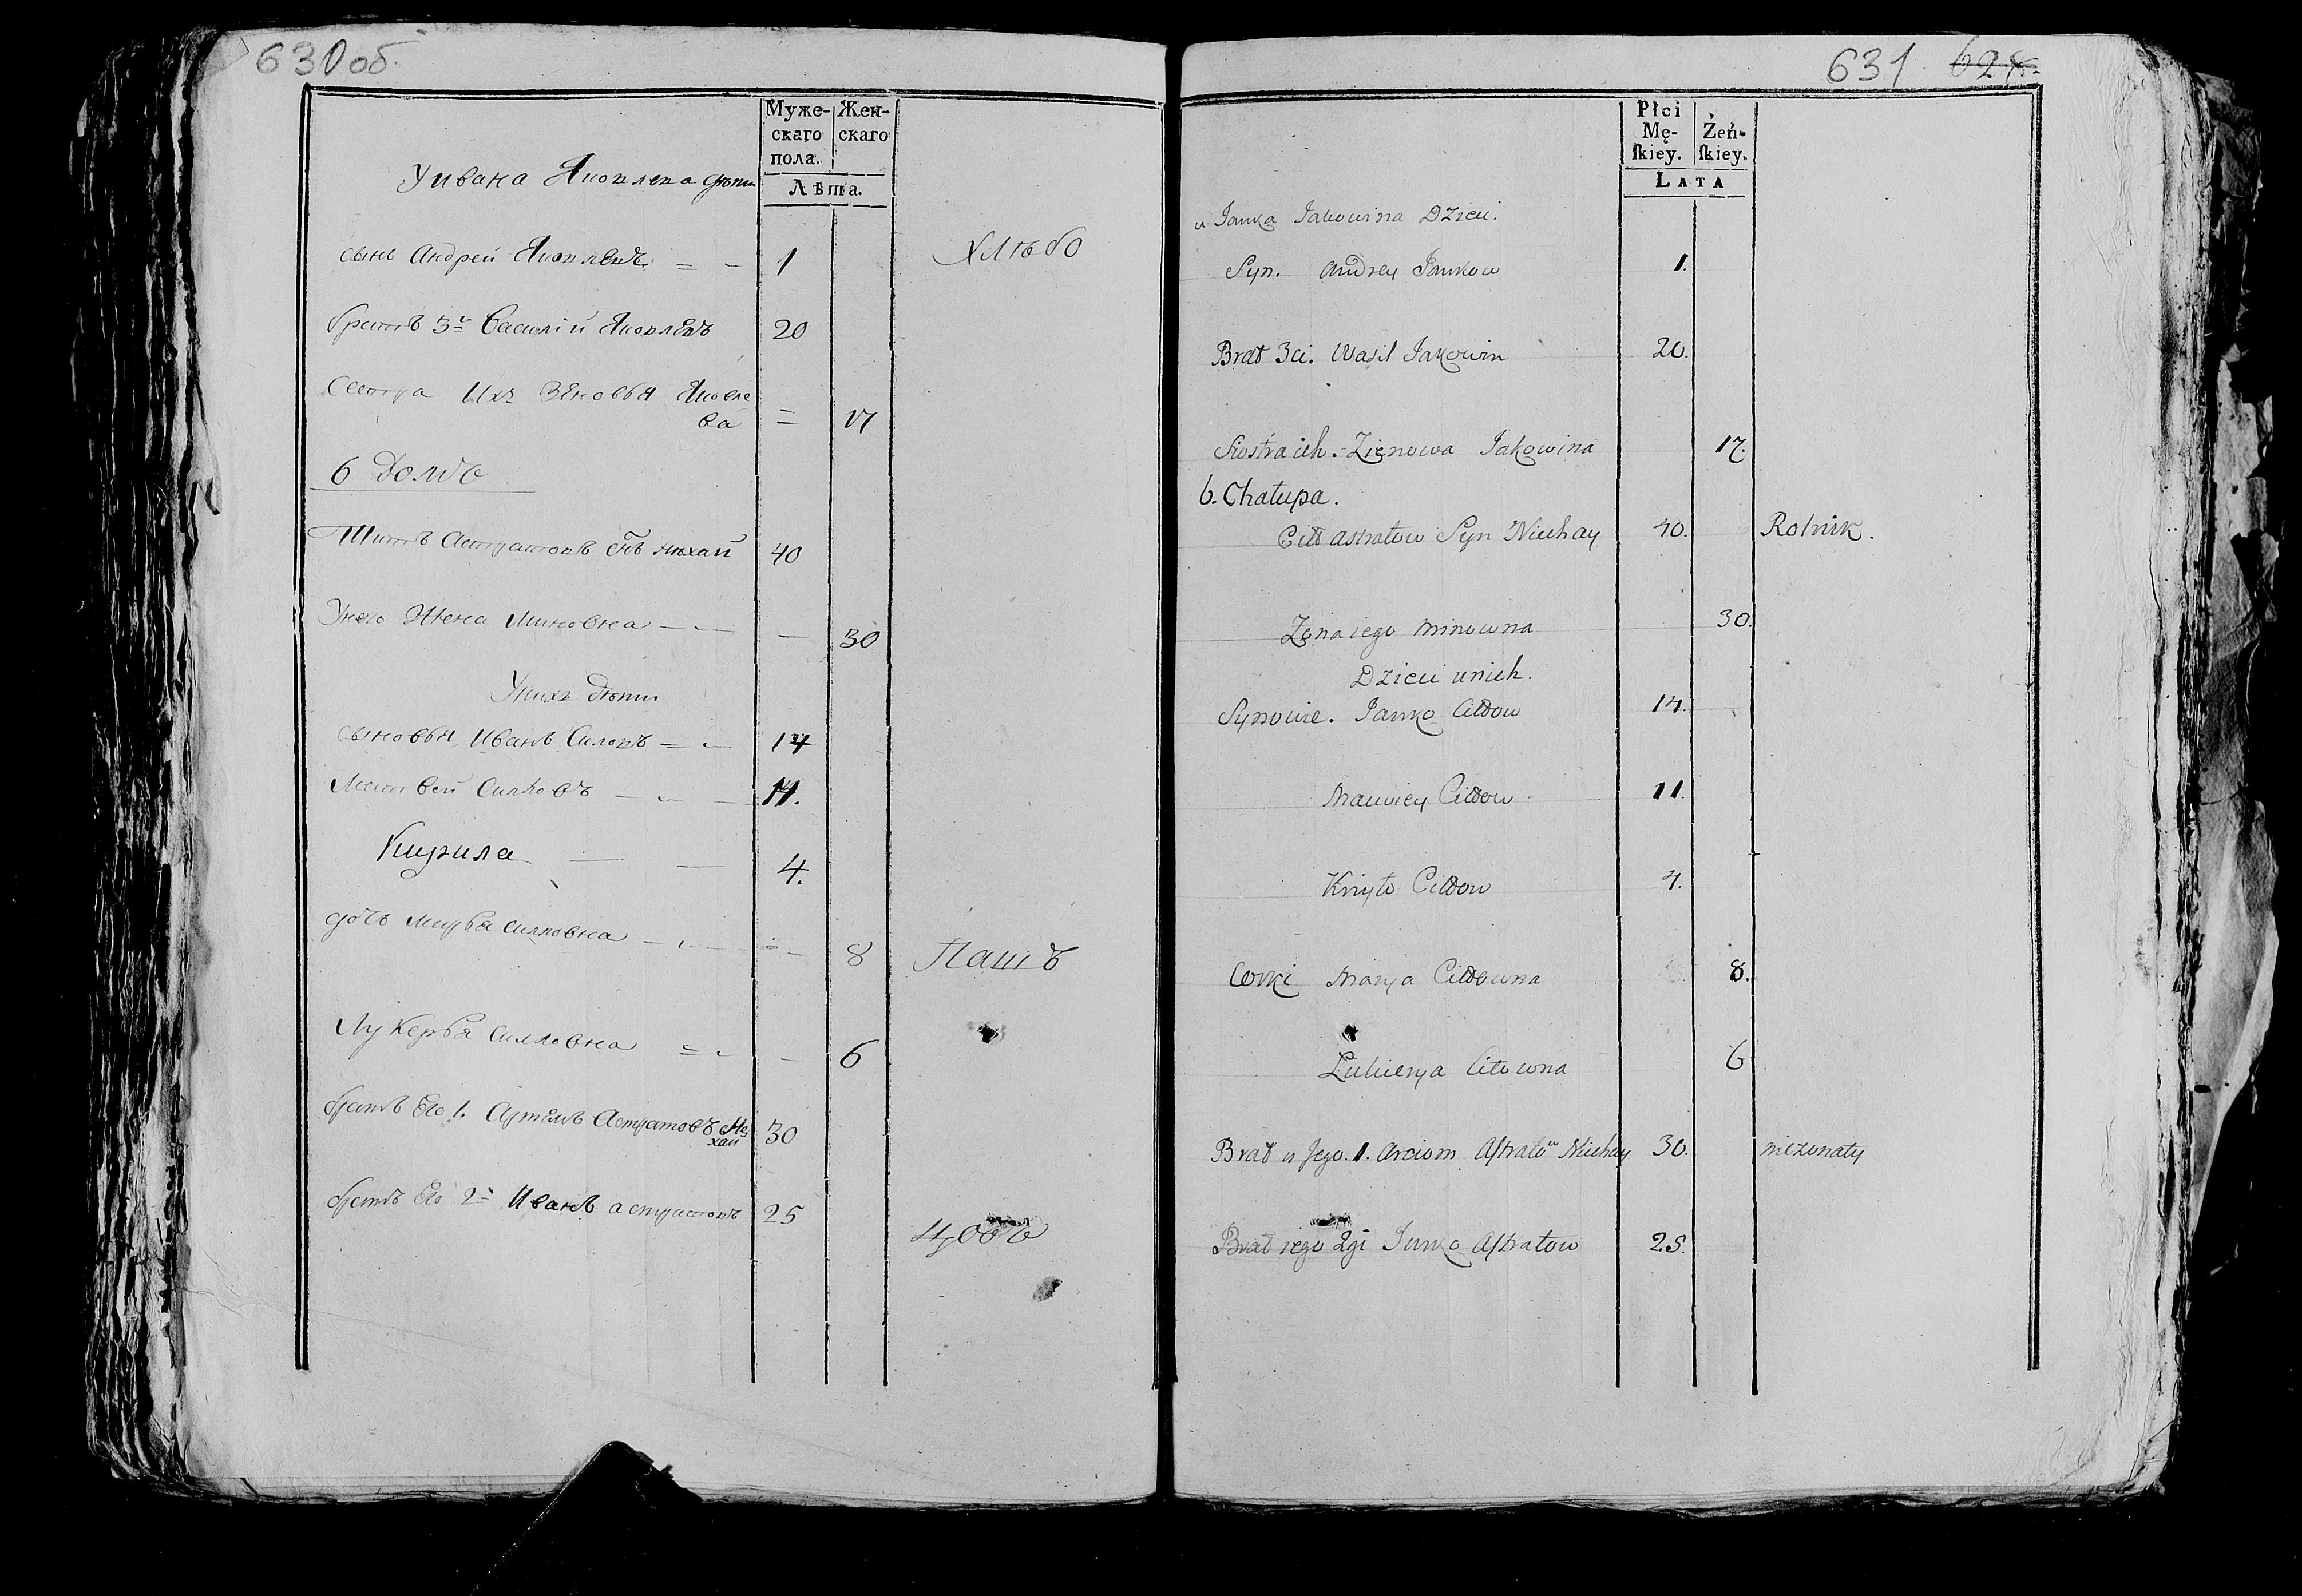 630об.
Муже-
скаго
пола.
Жен-
скаго
Лѣта.
У Ивана Яковлева дѣти
сынъ Андрей Яковлевъ = - 1
Хлѣбо
братъ 3й Василій Яковлевъ 20
Сестра Ихъ Зѣновья Яковле
ва = 17
6 Домъ
Титъ Астратовъ Снъ Нѣхай 40
У него Жена Миновна - - - 30
У нихъ дѣти
сыновья Иванъ = - 14
Матвей - - 11.
Кирила - - 4.
дочь Марья - - - 8
Пашъ
Лукерья = - - 6
братъ Его 1. Артемъ Астратовъ Не
хай 30
братъ Его 2й Иванъ астратовъ 25
631. 624.
Płci
Mę-
ſkiey.
Żeń-
ſkiey.
LATA
u Janka Jakowina Dzieci.
Syn. Andrey Jankow 1.
Brat 3ci. Wasil Jakowin 20.
Siostra ich. Zienowa Jakowina 17.
6. Chałupa.
Cit Astratow Syn Niechay 40. Rolnik.
Żona iego Minowna 30.
Dzieci u nich.
Synowie. Janko Citow 14.
Mauwiey Citow 11.
Kiryło Citow 4.
Corki Marya Citowna 8.
Łukierya Citowna 6
Brat u Jego. 1. Arciom Astratow Niechay 30. nieżonaty
Brat iego 2gi Janko Astratow 25.